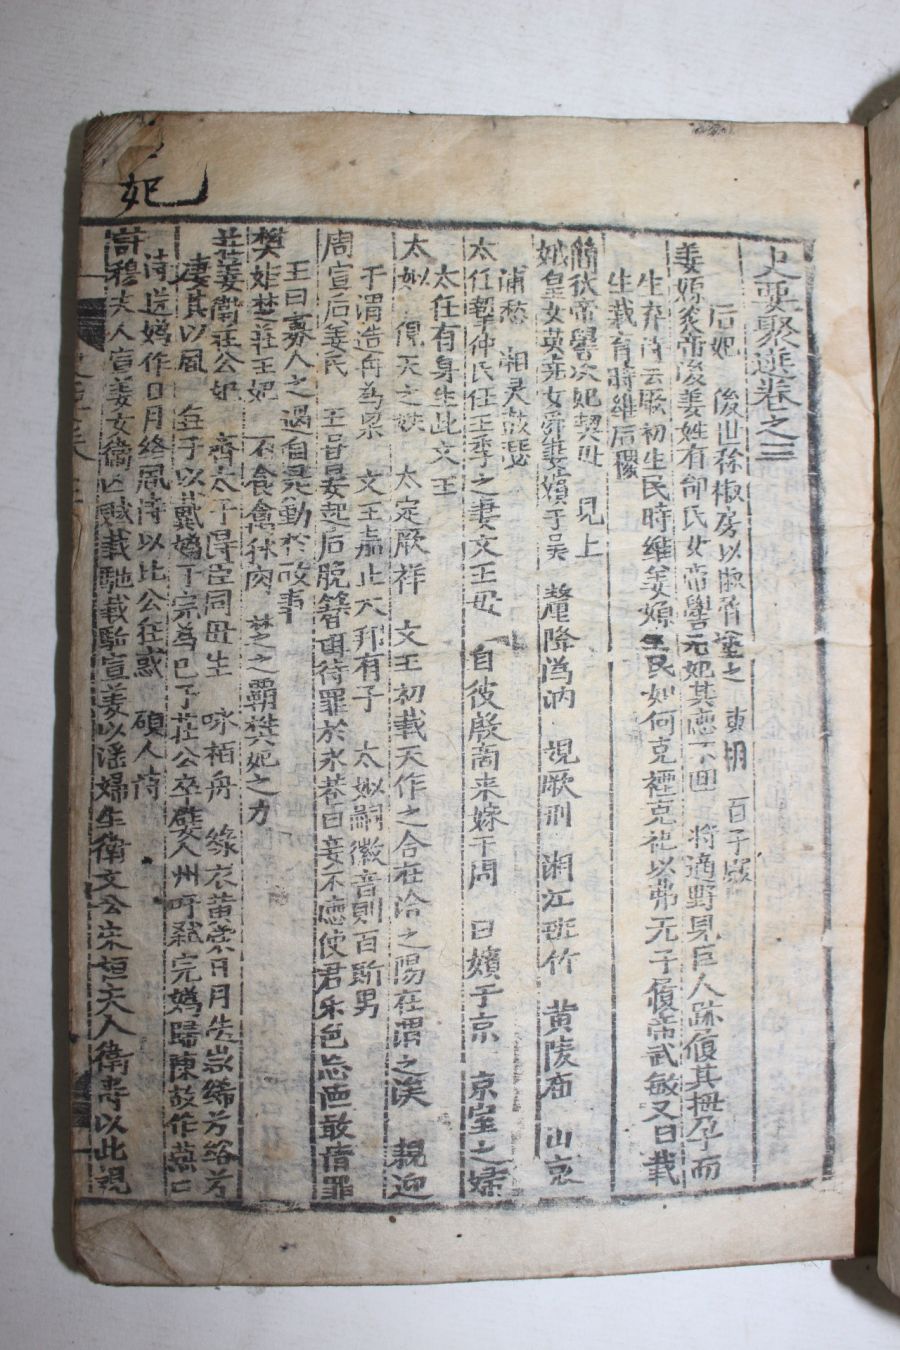 妃
史要聚選卷之三
后妃 後世稱椒房以椒香塗之 東朝 百子帳
姜嫄炎帝後姜姓有邰氏女帝嚳元妃其德不回 將適野見巨人跡履其拇孕而
生弃詩云厥初生民時維姜嫄生民如何克禋克祀以弗无子履帝武敏又曰載
生載育時維后稷
簡狄帝嚳次妃契母 見上
娥皇女英堯女舜妻嬪于吳 釐降潙汭 覌厥刑 湘江班竹 黄陵庙 山哀
浦愁 湘灵鼓瑟
太任摯仲氏任王季之妻文王母 自彼殷商来嫁于周 曰嬪于京 京室之婦
太任有身生此文王
太姒 俔天之妹 太定厥祥 文王初載天作之合在洽之陽在渭之涘 親迎
于渭造舟為梁 文王嘉止大邦有子 太姒嗣徽音則百斯男
周宣后姜氏 王甞晏起后脫簪珥待罪於永巷曰妾不德使君禾色忘德敢倩罪
王曰寡人之過自是勤於政事
樊姬楚莊王妃 不食禽獸肉 楚之覇樊妃之力
莊姜衛莊公妃 齊太子得臣同母生 咏栢舟 綠衣黄裳日月告 絺兮綌兮
凄其以風 至于以戴嬀 子完為已子莊公卒嬖人州吁弑完嬀歸陳 作燕
詩送嬀作日月終風詩以比公狂惑 碩人詩
許穆夫人宣姜女衛 載馳載 宣姜以淫婦生衛文公宋桓夫人衛壽以此覌